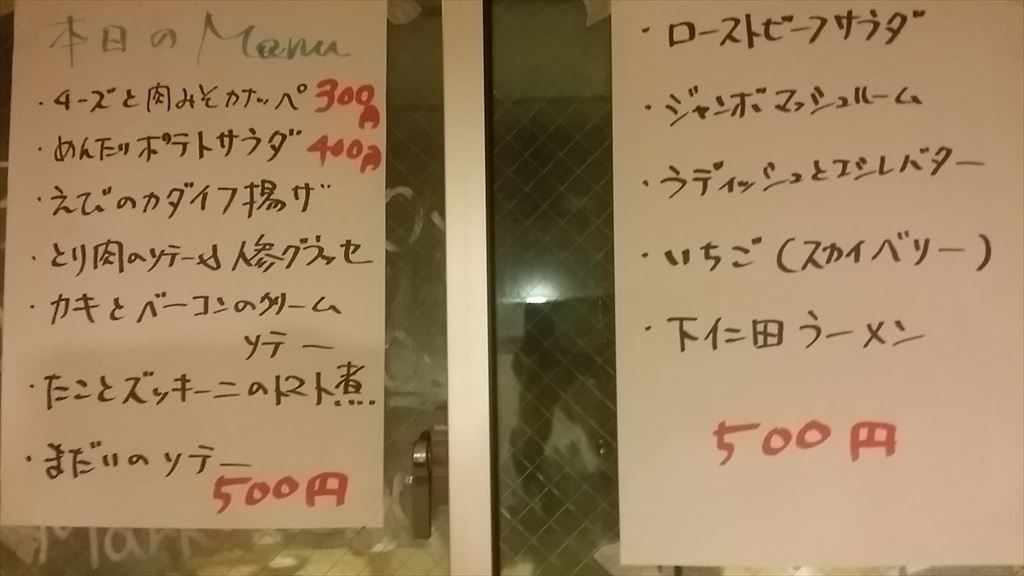 本日の Menu
・チーズと肉みそカナッペ 300円
・めんたいポテトサラダ 400円
・えびのカダイフ揚げ
・とり肉のソテー 人参グラッセ
・カキとベーコンのクリーム
ソテー
・たことズッキーニのトマト煮
・まだいのソテー
500円
・ローストビーフサラダ
・ジャンボマッシュルーム
・ラディッシュとエシレバター
・いちご(スカイベリー)
・下仁田ラーメン
500円